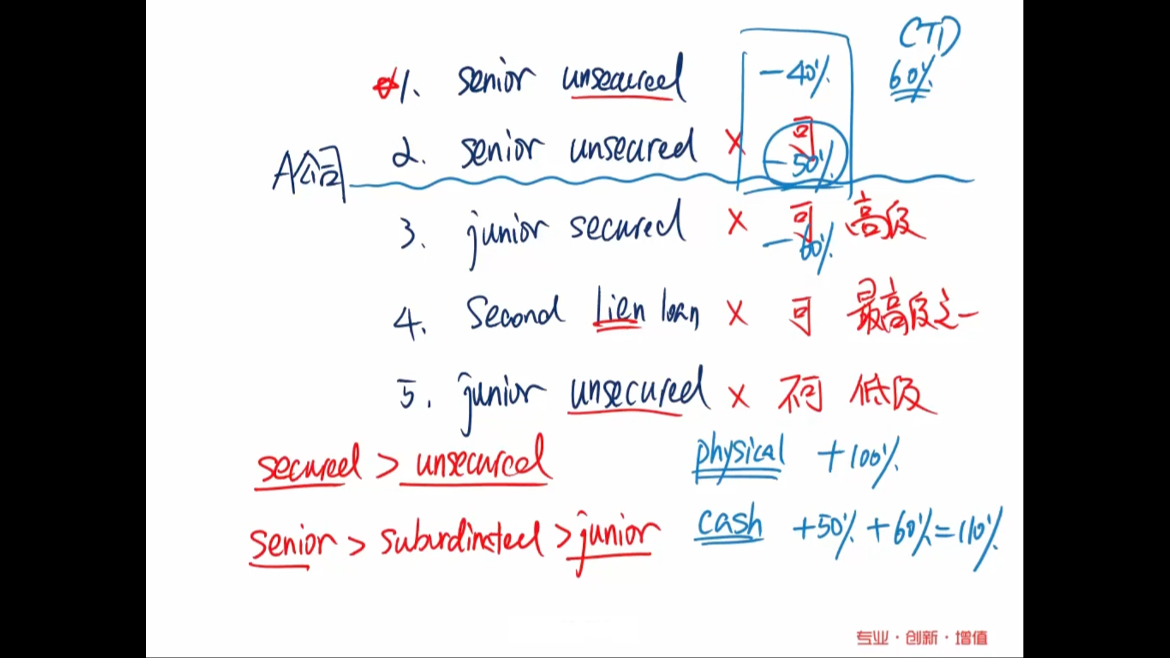 CTD
1. senior unsecured -40% 60%
2. senior unsecured × 可 -50%
A公司
3. junior secured × 可 -60% 高级
4. Second Lien loan × 可 最高级之一
5. junior unsecured × 不可 低级
secured > unsecured physical +100%
senior > subordinated > junior cash +50% + 60% = 110%
专业·创新·增值